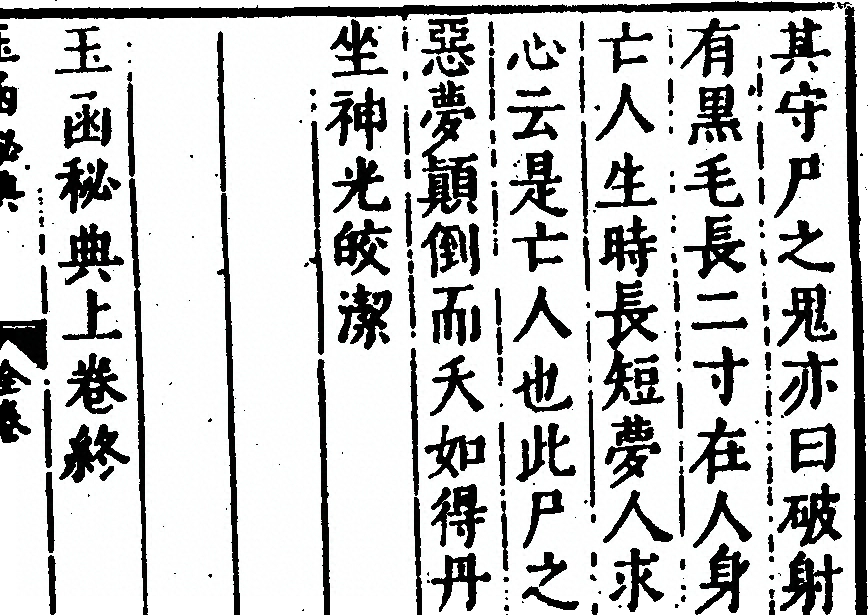 其守尸之鬼亦曰破射
有黒毛長二寸在人身
亡人生時長短夢人求
心云是亡人也此尸之
惡夢顛倒而夭如得丹
坐神光皎潔
玉函秘典上卷終
玉函秘典
全卷